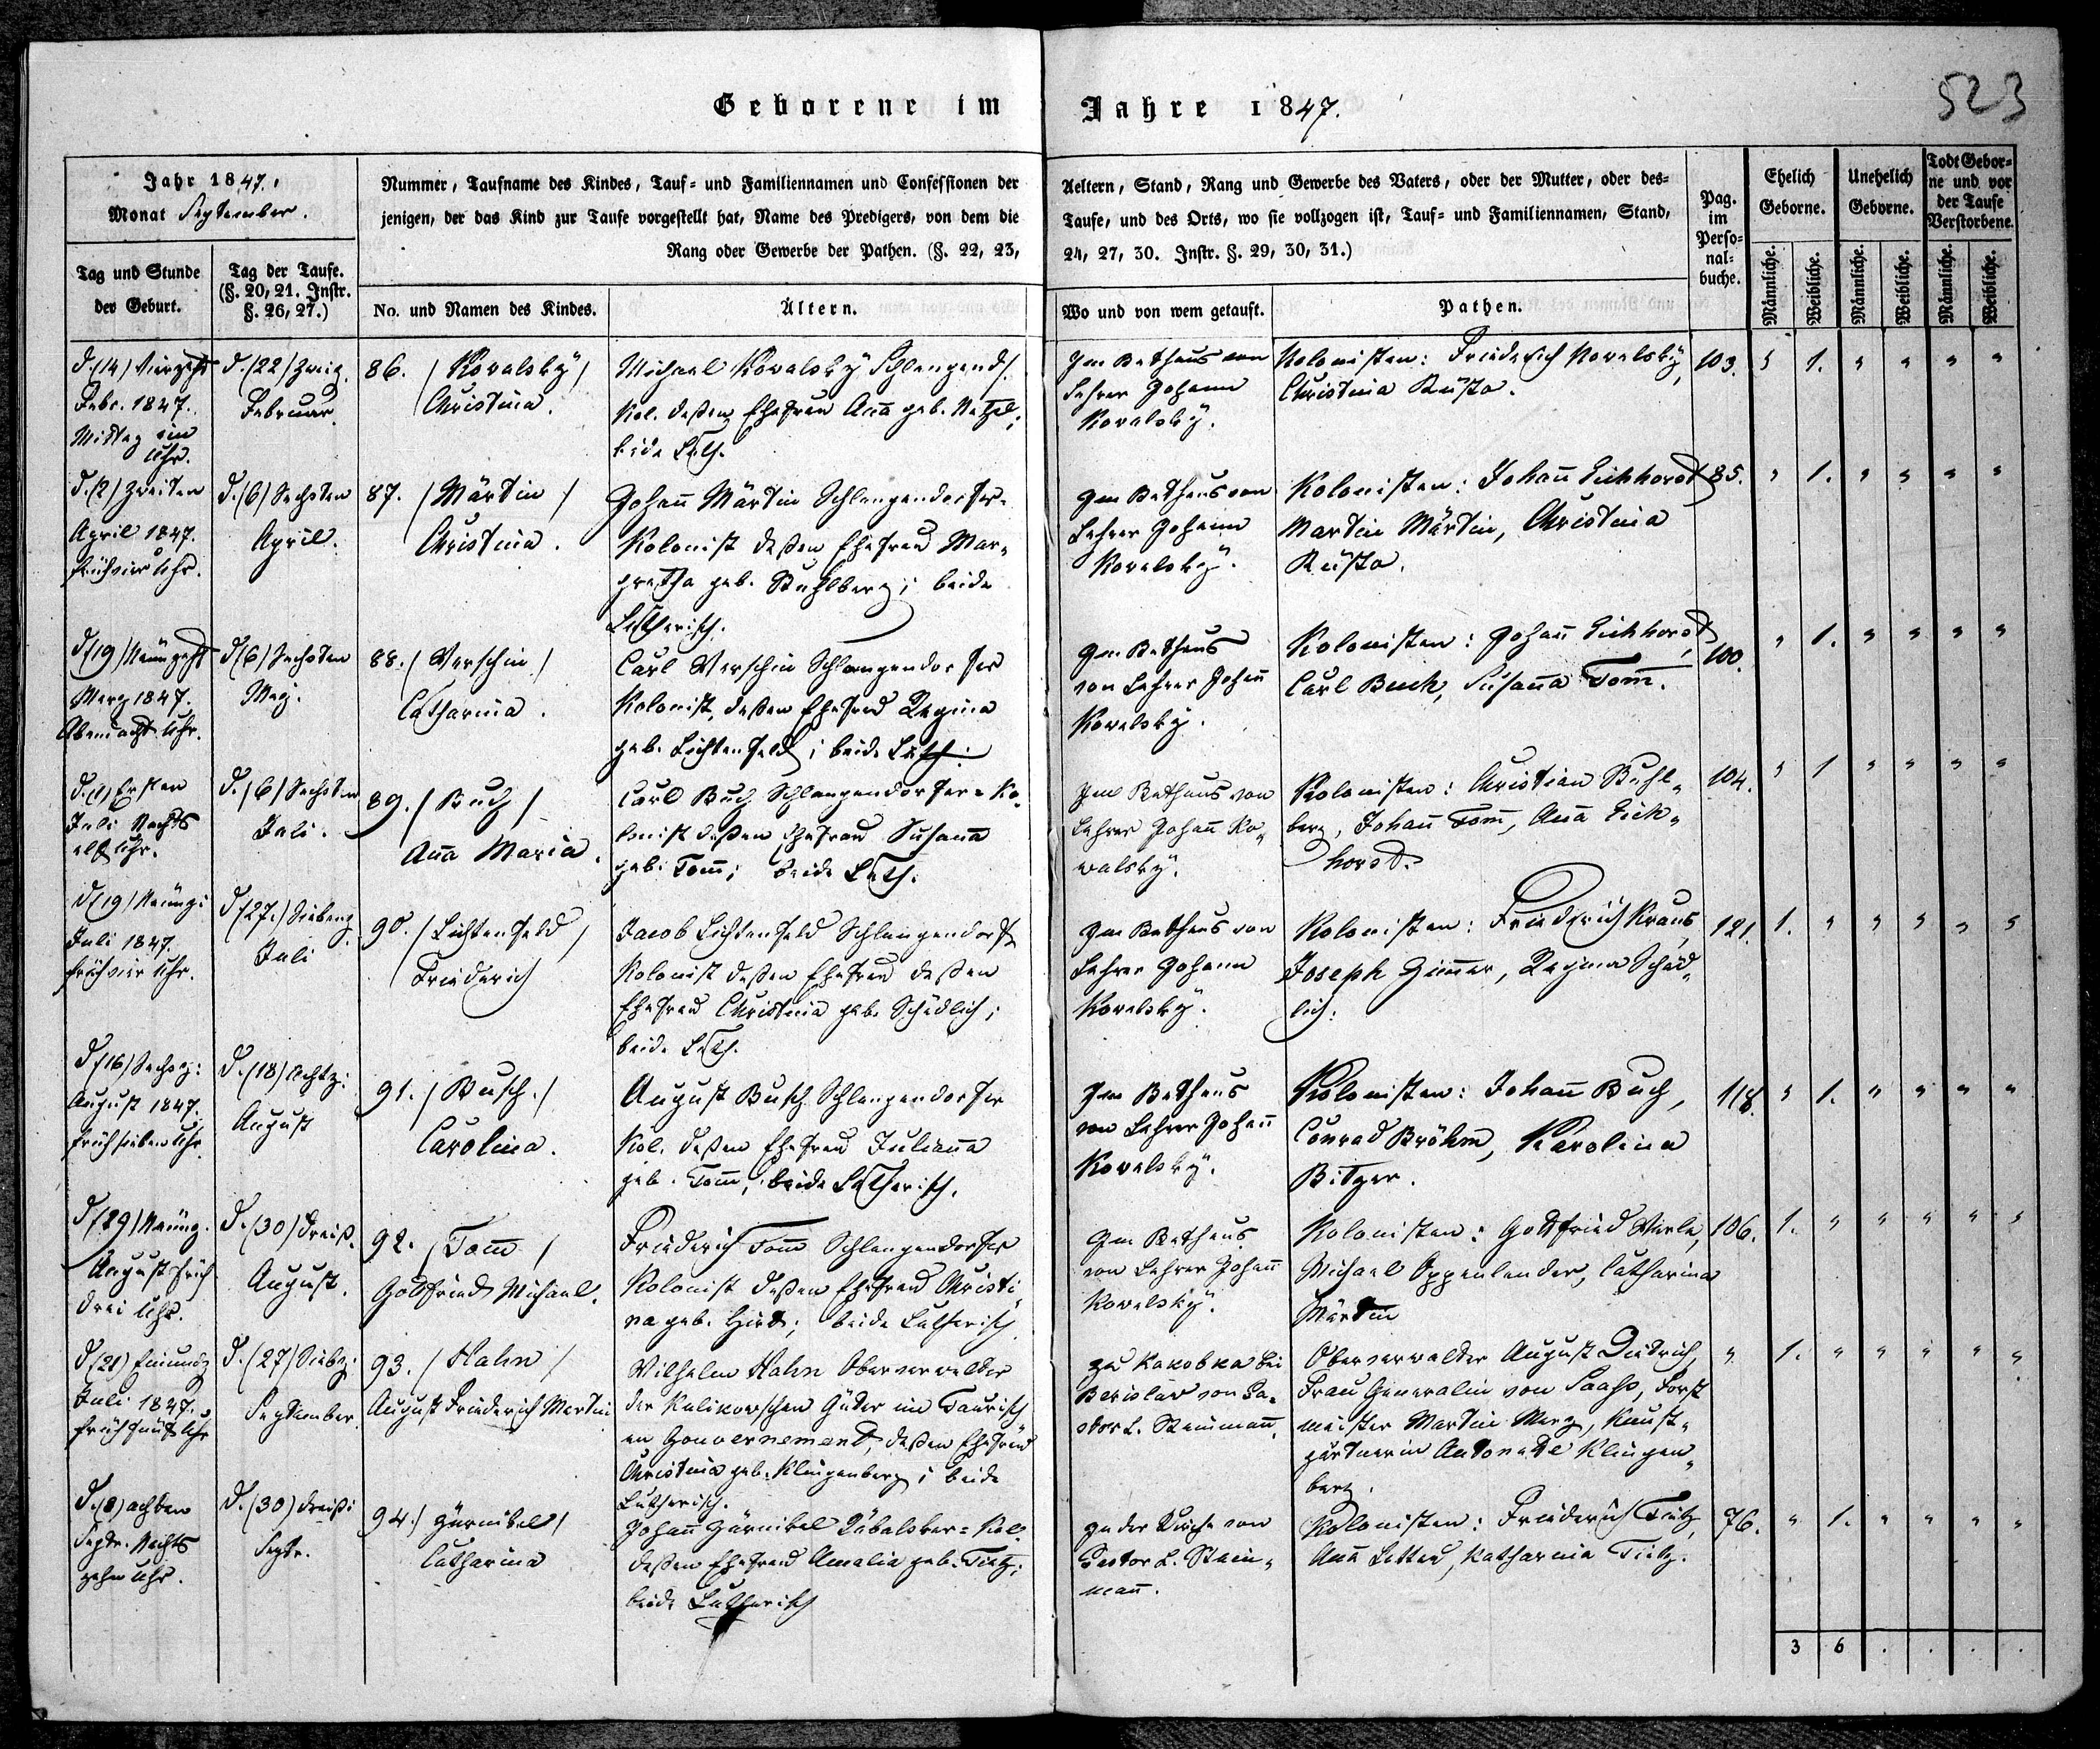 523
Geborene im Jahre 1847.
Jahr 1847.
Monat September.
Tag und Stunde
der Geburt.
Tag der Taufe.
(§. 20, 21. Instr.
§. 26, 27.)
Nummer, Taufname des Kindes, Tauf- und Familiennamen und Confessionen der
jenigen, der das Kind zur Taufe vorgestellt hat, Name des Predigers, von dem die
Rang oder Gewerbe der Pathen. (§. 22, 23,
No. und Namen des Kindes.
Ältern.
Aeltern, Stand, Rang und Gewerbe des Vaters, oder der Mutter, oder des-
Taufe, und des Orts, wo sie vollzogen ist, Tauf- und Familiennamen, Stand,
24, 27, 30. Instr. §. 29, 30, 31.)
Wo und von wem getauft.
Pathen.
Pag.
im
Perso-
nal-
buche.
Ehelich
Geborne.
Unehelich
Geborne.
Todt Gebor-
ne und vor
der Taufe
Verstorbene.
Männliche.
Weibliche.
Männliche.
Weibliche.
Männliche.
Weibliche.
d. (14) Vierzeht
Febr. 1847.
Mittag ein
Uhr.
d. (22) Zweiz.
Februar.
86. / Kovalsky /
Christina.
Michael Kovalsky Schlangend/.
Kol. deßen Ehefrau Anna geb. Netzel;
beide Luth.
Im Bethaus von
Lehrer Johann
Kovalsky.
Kolonisten: Friederich Kovalsky,
Christina Küsta.
103. " 1. " " " "
d. (2) Zweiten
April 1847.
früh vier Uhr.
d. (6) Sechsten
April.
87. / Märtin /
Christina.
Johann Märtin Schlangendorfer-
Kolonist deßen Ehefrau Mar-
gretha geb. Buhlberg; beide
Lutherisch.
Im Bethaus von
Lehrer Johann
Kovalsky.
Kolonisten: Johann Eichhorst
Martin Märtin, Christina
Küsta.
85. " 1. " " " "
d. (19) Neünzeht
Merz 1847.
Abend acht Uhr.
d. (6) Sechsten
Mey.
88. / Werschin /
Catharina.
Carl Werschin Schlangendorfer
Kolonist, deßen Ehefrau Regina
geb. Lichtenfeld; beide Luth.
Im Bethaus
von Lehrer Johann
Kovalsky.
Kolonisten: Johann Eichhorst,
Carl Buch, Susanna Tomm.
100. " 1. " " " "
d. (1) Ersten
Juli Nachts
elf Uhr.
d. (6) Sechsten
Juli.
89. / Buch /
Anna Maria.
Carl Buch Schlangendorfer-Ko-
lonist deßen Ehefrau Susanna
geb. Tomm; beide Luth.
Im Bethaus von
Lehrer Johann Ko-
walsky.
Kolonisten: Christian Buhl-
berg, Johann Tomm, Anna Eich-
horst.
104. " 1 " " " "
d. (19) Neünz:
Juli 1847.
früh vier Uhr.
d. (27.) Siebenz
Juli
90. / Lichtenfeld /
Friederich
Jacob Lichtenfeld Schlangendorf
Kolonist deßen Ehefrau deßen
Ehefrau Christina geb. Schädlich;
beide Luth.
Im Bethaus von
Lehrer Johann
Kovalsky.
Kolonisten: Friederich Kraus,
Joseph Zimmer, Regina Schäd-
lich.
121. 1. " " " " "
d. (16) Sechsz:
August 1847.
früh sieben Uhr.
d. (18) Achtz:
August
91. / Busch. /
Carolina.
August Busch Schlangendorfer
Kol. deßen Ehefrau Julianna
geb. Tomm, beide Lutherisch.
Im Bethaus
von Lehrer Johann
Kovalsky.
Kolonisten: Johann Buch,
Conrad Bröhm, Karolina
Bitzer.
118. " 1. " " " "
d. (29) Neünz.
August früh
drei Uhr.
d. (30) dreiß.
August.
92. / Tomm /
Gottfried Michael.
Friederich Tomm Schlangendorfer
Kolonist deßen Ehefrau Christi
na geb. Hirt; beide Lutherisch
Im Bethaus
von Lehrer Johann
Kovalsky.
Kolonisten: Gottfried Werle,
Michael Oppenlender, Catharina
Märtin
106. 1. " " " " "
d. (21) Einundz
Juli 1847.
früh fünf Uhr
d. (27) Siebz:
September
93. / Hahn /
August Friederich Martin
Wilhelm Hahn Oberverwalter
der Kulikowschen Güter im Taurisch
en Gouvernement, deßen Ehefrau
Christina geb. Klingenberg; beide
Lutherisch.
zu Kakovka bei
Berislav von Pa-
stor L. Steinmann.
Oberverwalter August Diedrich,
Frau Generalin von Saaß, Forst
meister Martin Merz, Kunst-
gärtnerin Antonette Klingen-
berg.
" 1. " " " " "
d. (8) achten
Septr. Nachts
zehn Uhr.
d. (30) dreißi
Septr.
94. / Härnikel /
Catharina
Johann Härnikel Kol.
deßen Ehefrau Amalia geb. Tietz;
beide Lutherisch
In der Kirche von
Pastor L. Stein-
mann.
Kolonisten: Friederich Tietz,
Anna Lettau, Katharina Tietz.
76. " 1. " " " "
3 6 . . . .